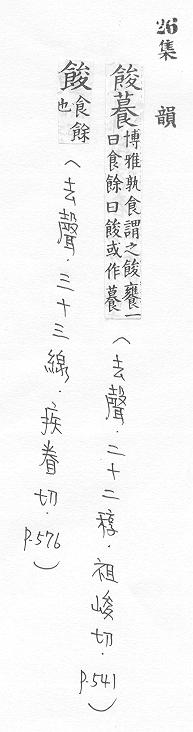 26集　韻
餕
博雅孰食謂之餕饔一
曰食餘曰餕或作
（去聲．二十二稕．祖峻切．p.541）
餕
食餘
也
（去聲．三十三線．疾眷切．p.576）